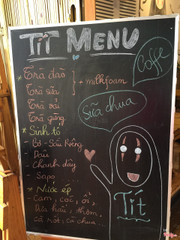 TÍT MENU
Coffe
Trà đào
Trà sữa
Trà vải
Trà gừng
+ milkfoam
Sữa chua
* Sinh tố
- Bơ - Sầu Riêng
- Dâu
- Chanh dây
- Sapo
* Nước ép
- Cam, cóc, ổi,
Dưa hấu, thơm,
Cà rốt, cà chua
Tít